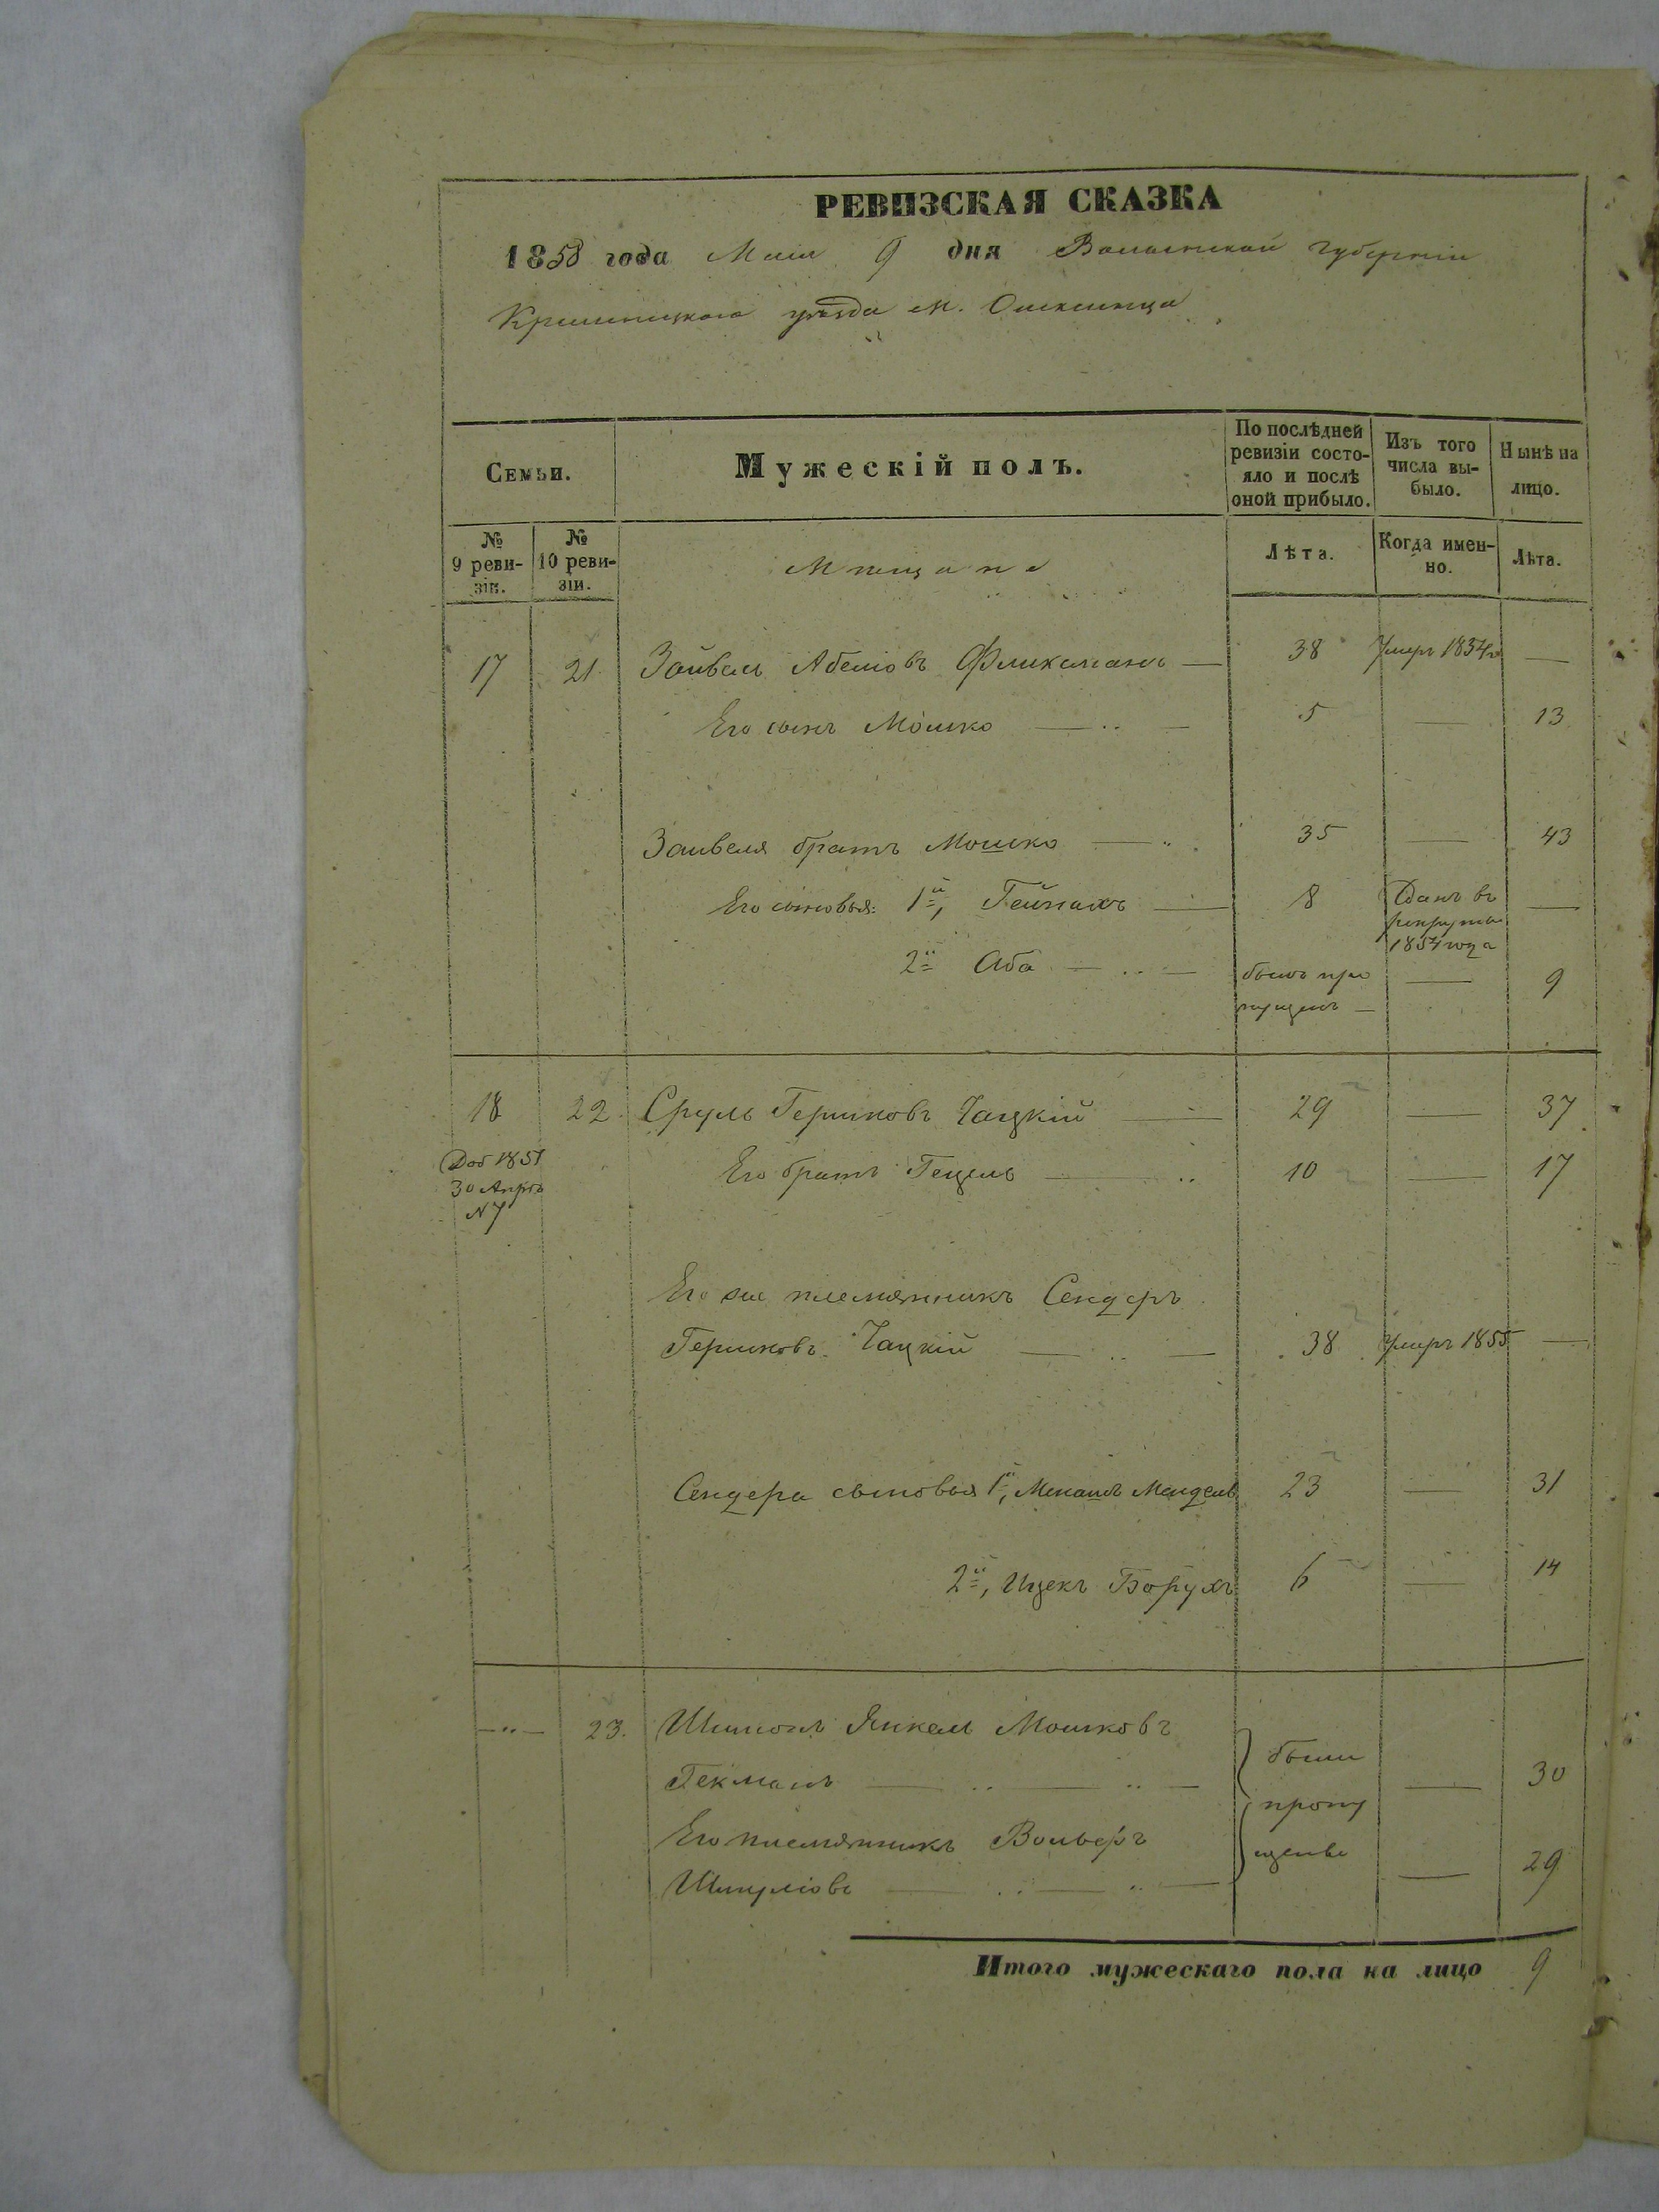 РЕВИЗСКАЯ СКАЗКА
1858 года Маія 9 дня Волынской губерніи
Кременецкаго уѣзда м. Олексинца
Семьи. Мужескій полъ. По послѣдней ревизіи состояло и послѣ оной прибыло. Изъ того числа выбыло. Нынѣ на лицо.
№ 9 ревизіи. № 10 ревизіи. Мѣщане Лѣта. Когда именно. Лѣта.
17 21 Зайвель Абелiовъ 38 Умеръ —
Его сынъ Мошко — 5 — 13
Зайвеля братъ Мошко — 35 — 43
Его сыновья: 1й, Гейнахъ — 8 Сданъ въ —
рекруты
1854 года
2й Аба — былъ про — 9
пущенъ —
18 22 Сруль Гершковъ Чацкій — 29 — 37
Доб 1851
30 Апрѣ
N 7
Его братъ Гецель — 10 — 17
Его же племянникъ Сендеръ
Гершковъ Чацкій — 38 Умеръ 1855 —
Сендера сыновья 1й, Менашъ Мендель 23 — 31
2й, Ицекъ Борухъ 6 — 14
— 23. Шимонъ Янкель Мошковъ
Гекманъ — были — 30
пропу
Его племянникъ Вольберъ
щены — 29
Шмулiовъ —
Итого мужескаго пола на лицо 9